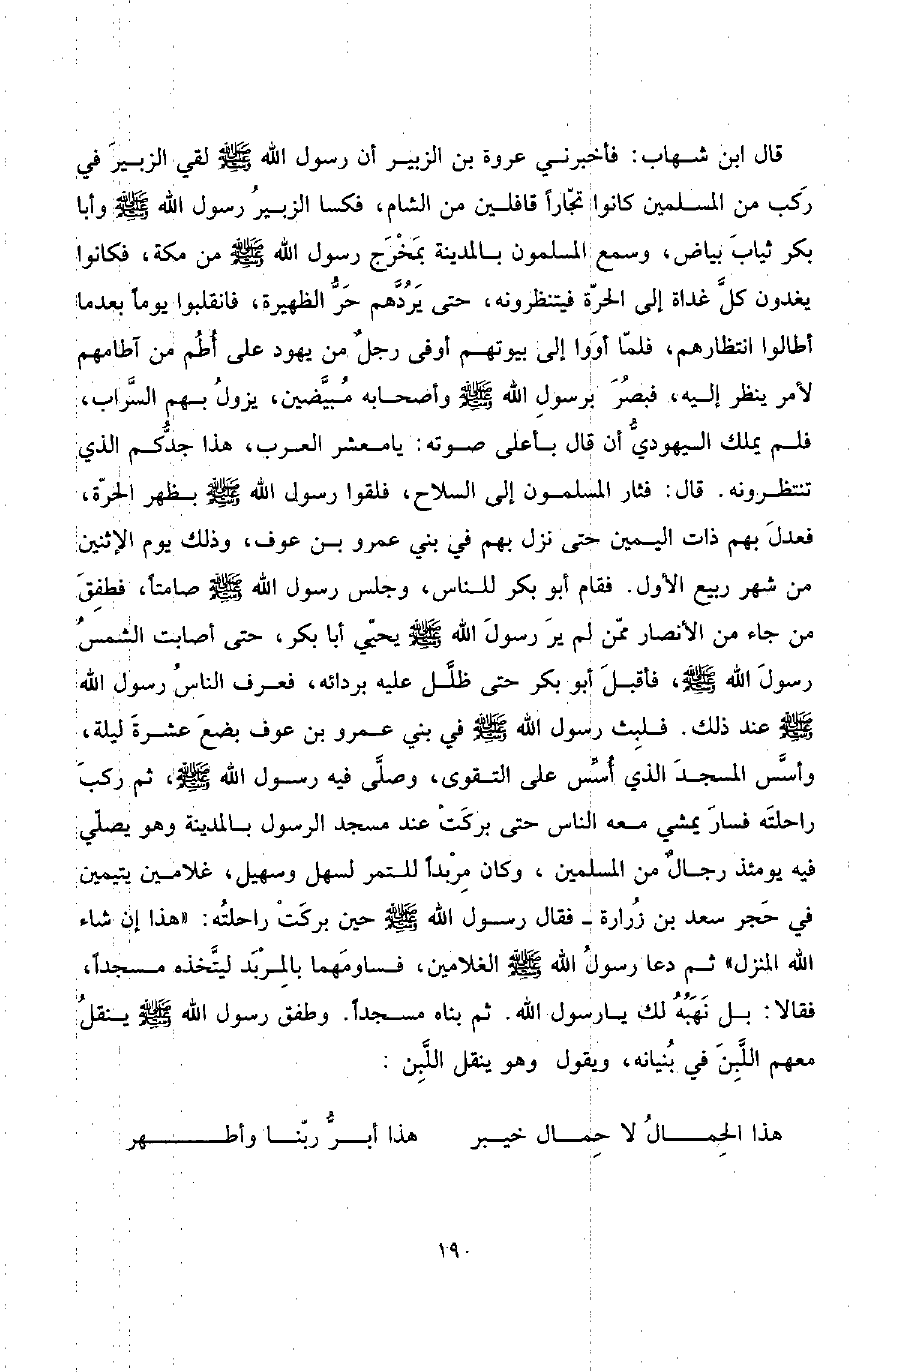 قال ابن شهاب: فأخبرني عروة بن الزبير أن رسول الله ﷺ لقي الزبيرَ في
رَكب من المسلمين كانوا تجّاراً قافلين من الشام، فكسا الزبيرُ رسول الله ﷺ وأبا
بكر ثيابَ بياض، وسمع المسلمون بالمدينة بمَخْرَج رسول الله ﷺ من مكة، فكانوا
يغدون كلَّ غداة إلى الحرّة فينتظرونه، حتى يَرُدَّهم حَرُّ الظهيرة، فانقلبوا يوماً بعدما
أطالوا انتظارهم، فلمّا أوَوا إلى بيوتهم أوفى رجلٌ من يهود على أُطُم من آطامهم
لأمر ينظر إليه، فبصُرَ برسولِ الله ﷺ وأصحابه مُبيَّضين، يزولُ بهم السَّراب،
فلم يملك اليهوديُّ أن قال بأعلى صوته: يامعشر العرب، هذا جدُّكم الذي
تنتظرونه. قال: فثار المسلمون إلى السلاح، فلقوا رسول الله ﷺ بظهر الحرّة،
فعدلَ بهم ذات اليمين حتى نزل بهم في بني عمرو بن عوف، وذلك يوم الإثنين
من شهر ربيع الأول. فقام أبو بكر للناس، وجلس رسول الله ﷺ صامتاً، فطفِقَ
من جاء من الأنصار ممّن لم يرَ رسولَ الله ﷺ يحيّي أبا بكر، حتى أصابت الشمسُ
رسولَ الله ﷺ، فأقبلَ أبو بكر حتى ظلَّل عليه بردائه، فعرف الناسُ رسول الله
ﷺ عند ذلك. فلبِث رسول الله ﷺ في بني عمرو بن عوف بضعَ عشرةَ ليلة،
وأسَّس المسجدَ الذي أُسِّس على التقوى، وصلَّى فيه رسول الله ﷺ، ثم ركبَ
راحلتَه فسارَ يمشي معه الناس حتى بركتْ عند مسجد الرسول بالمدينة وهو يصلّي
فيه يومئذ رجالٌ من المسلمين ، وكان مِرْبداً للتمر لسهل وسهيل، غلامين يتيمين
في حَجر سعد بن زُرارة ـ فقال رسول الله ﷺ حين بركتْ راحلتُه: «هذا إن شاء
الله المنزل» ثم دعا رسولُ الله ﷺ الغلامين، فساومَهما بالمِرْبَد ليتَّخذه مسجداً،
فقالا: بل نَهَبُهُ لك يارسول الله. ثم بناه مسجداً. وطفق رسول الله ﷺ ينقلُ
معهم اللَّبِنَ في بُنيانه، ويقول وهو ينقل اللَّبِن :
هذا الحِمالُ لا حِمال خيبر هذا أبرُّ ربّنا وأطهر
١٩٠